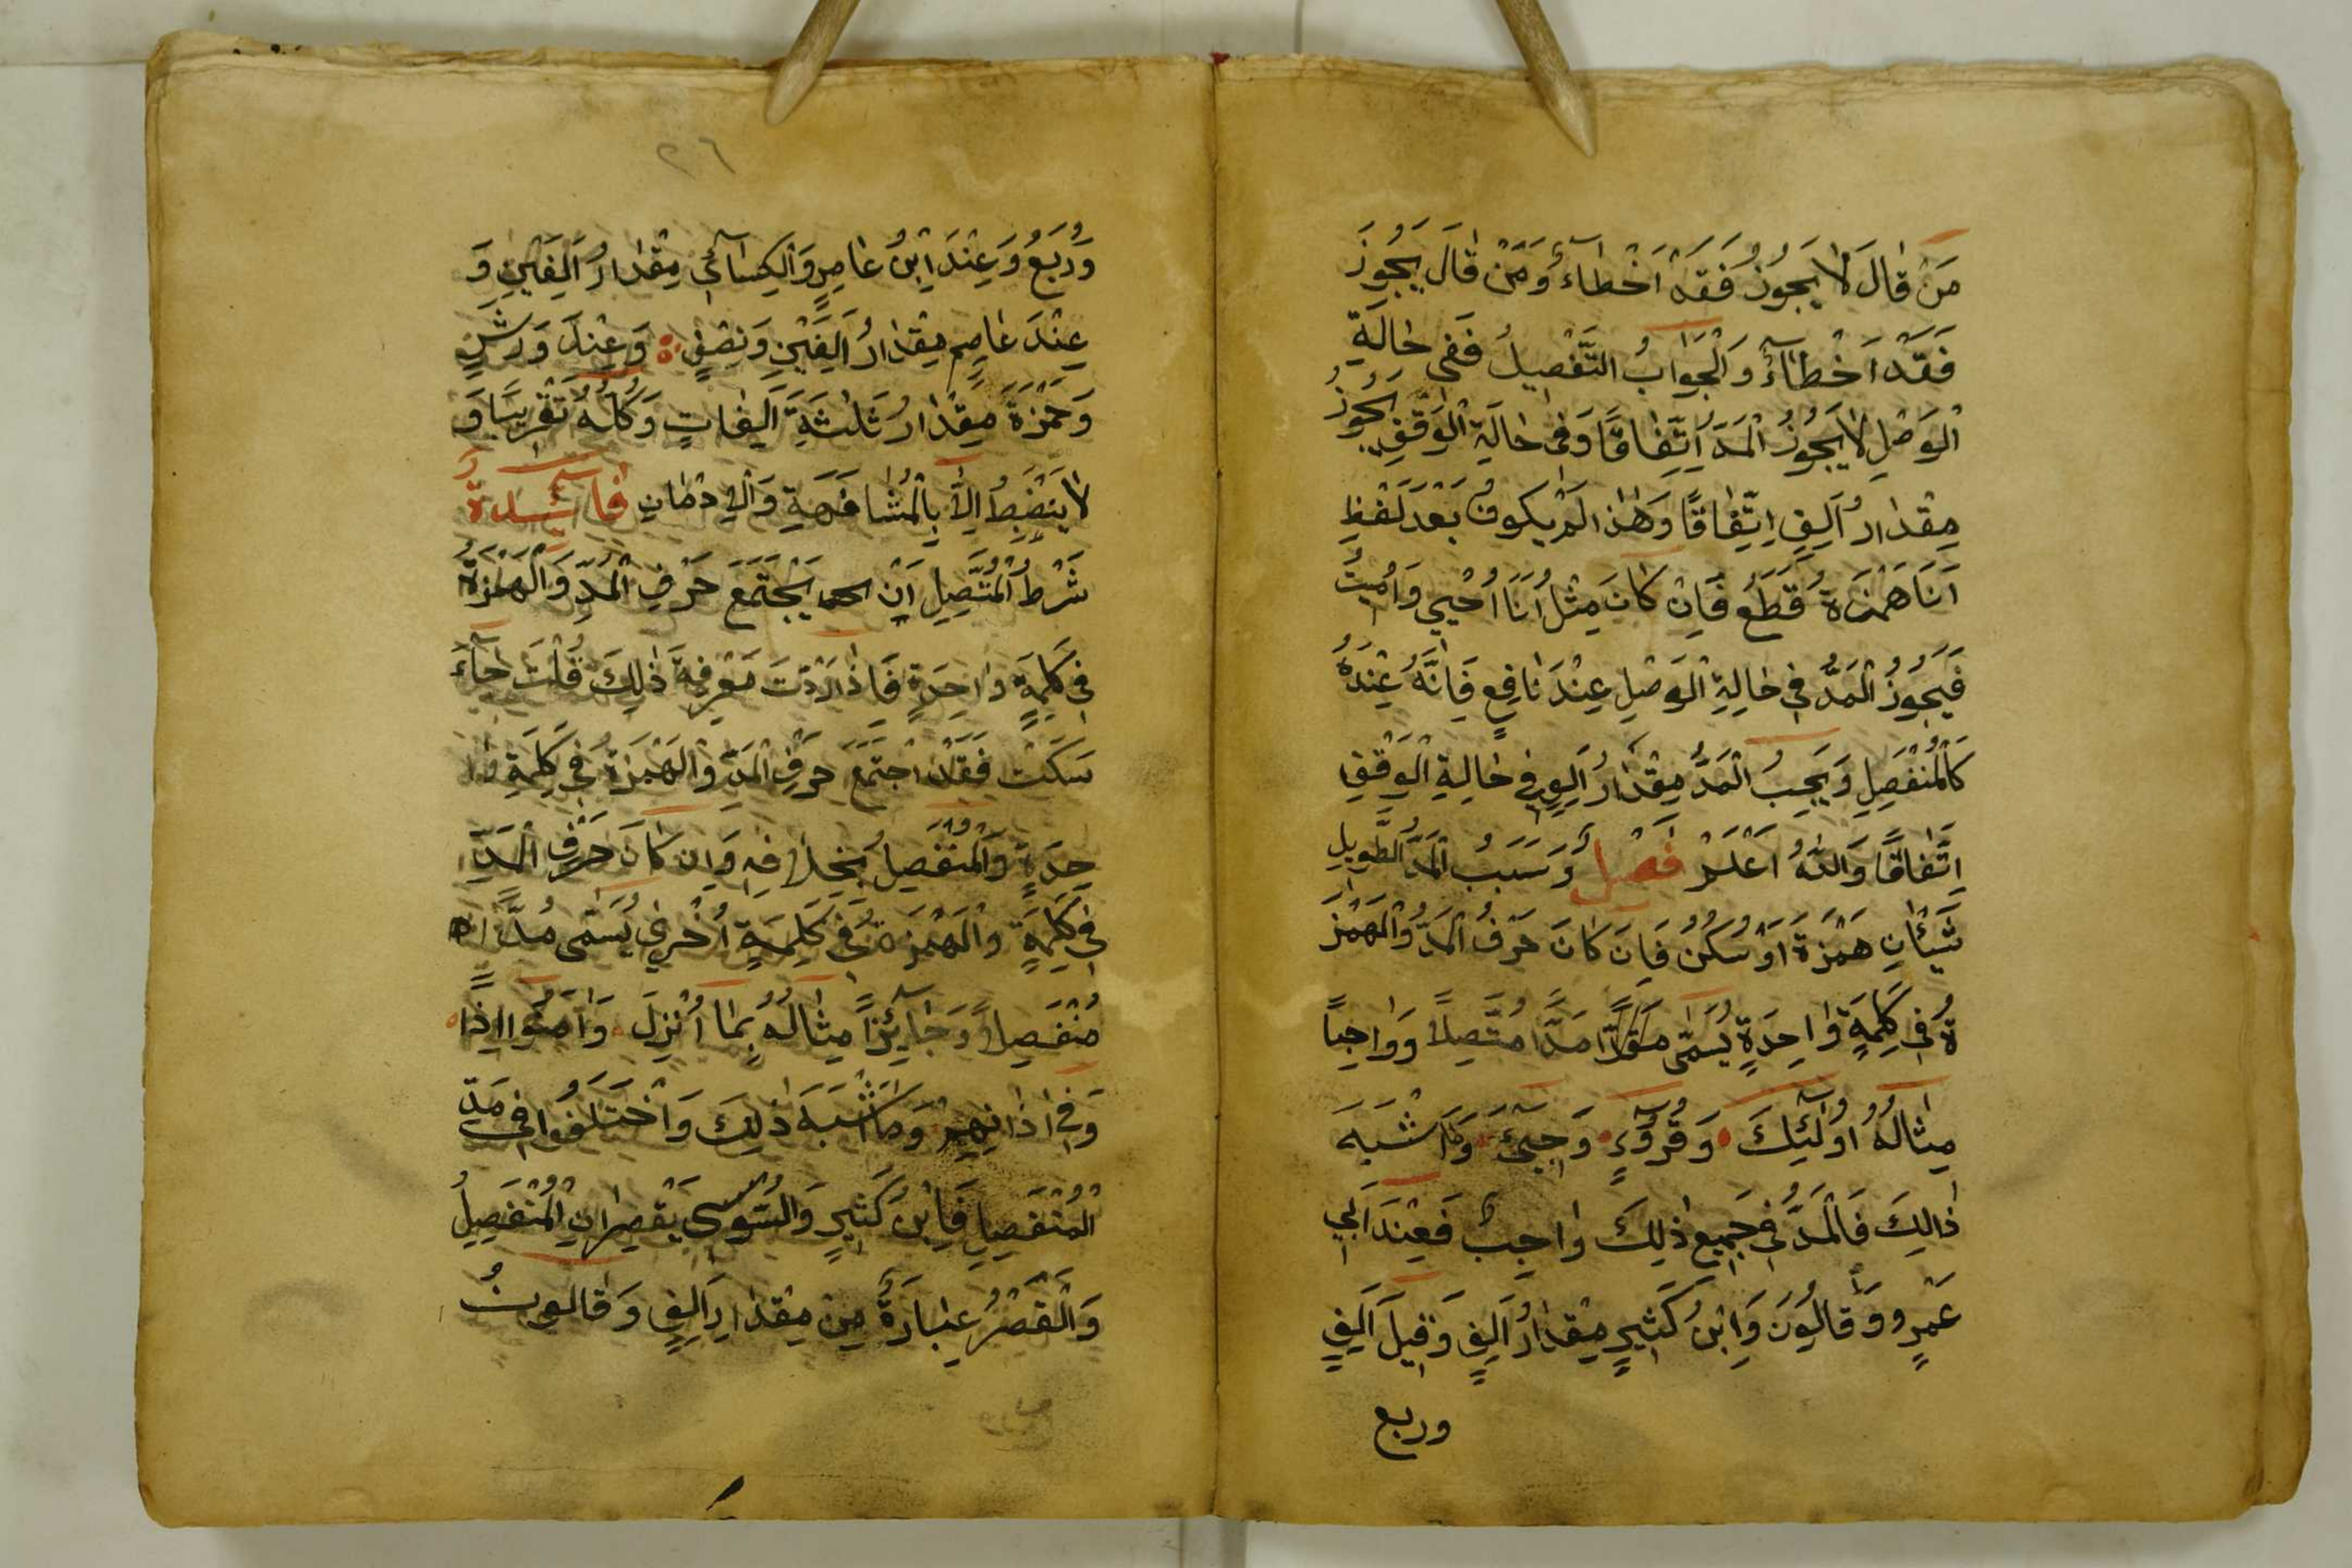 مَنْ قَالَ لَا يَجُوزُ فَقَدْ اَخْطَاءَ وَمَنْ قَالَ يَجُوزُ
فَقَدْ اَخْطَاءَ وَالْجَوَابُ التَّفْصِيلُ فَفِي حَالَةِ
الْوَصْلِ لَا يَجُوزُ الْمَدُّ اِتِّفَاقًا وَفِي حَالَةِ الْوَقْفِ يَجُوزُ
مِقْدَارُ اَلِفٍ اِتِّفَاقًا وَهٰذَا لَمْ يَكُونُ بَعْدَ لَفْظِ
اَنَا هَمْزَةُ قَطْعٍ فَاِنْ كَانَ مِثْلُ اَنَا اُحْيِي وَاُمِيتُ
فَيَجُوزُ الْمَدُّ فِي حَالَةِ الْوَصْلِ عِنْدَ نَافِعٍ فَاِنَّهُ عِنْدَهُ
كَالْمُنْفَصِلِ وَيَجِبُ الْمَدُّ مِقْدَارُ اَلِفٍ فِي حَالَةِ الْوَقْفِ
اِتَّفَاقًا وَاللّٰهُ اَعْلَمُ فَصْلٌ وَسَبَبُ الْمَدِّ الطَّوِيلِ
شَيْئَانِ هَمْزَةٌ اَوْ سُكُنٌ فَاِنْ كَانَ حَرْفُ الْمَدِّ وَالْهَمْزَ
ةُ فِي كَلِمَةٍ وَاحِدَةٍ يُسَمَّى مَدًّا مُتَّصِلًا وَوَاجِبًا
مِثَالُهُ اُولٰئِكَ وَقُرُوٓءٍ وَجِيٓءَ وَمَا اَشْبَهَ
ذَالِكَ فَالْمَدُّ فِي جَمِيعِ ذٰلِكَ وَاجِبٌ فَعِنْدَ اَبِي
عَمْرٍو وَقَالُونَ وَابْنُ كَثِيرٍ مِقْدَارُ اَلِفٍ وَقِيلَ اَلِفٍ
وربع
٢٦
وَرُبَعُ وَعِنْدَ ابْنُ عَامِرٍ وَالْكِسَائِي مِقْدَارُ اَلِفَيْنِ وَ
عِنْدَ عَاصِمٍ مِقْدَارُ اَلِفَيْنِ وَنِصْفٍ وَعِنْدَ وَرْشٍ
وَحَمْزَةَ مِقْدَارُ ثَلٰثَةِ اَلِفَاتٍ وَكُلُّهُ تَقْرِيبًا وَ
لَا يَنْضَبِطُ اِلَّا بِالْمُشَافَهَةِ وَالْاِدْمَانِ فَائِدَةٌ
شَرْطُ الْمُتَّصِلِ اَنْ يَجْتَمَعَ حَرْفِ الْمَدِّ وَالْهَمْزَةُ
فِي كَلِمَةٍ وَاحِدَةٍ فَاِذَا اَرَدْتَ مَعْرِفَةَ ذٰلِكَ قُلْتَ جَآءَ
سَكَتَ فَقَدْ اجْتَمَعَ حَرْفُ الْمَدِّ وَالْهَمْزَةُ فِي كَلِمَةٍ وَا
حِدَةٍ وَالْمُنْفَصِلُ بِخِلَافِهِ وَاِنْ كَانَ حَرْفِ الْمَدِّ
فِي كَلِمَةٍ وَالْهَمْزَةُ فِي كَلِمَةٍ اُخْرٰى يُسَمَّى مَدًّا
مُنْفَصِلًا وَجَائِزًا مِثَالُهُ بِمَا اُنْزِلَ وَاٰمَنُوا اِذَا
وَفِي اٰذَانِهِمْ وَمَا اَشْبَهَ ذٰلِكَ وَاخْتَلَفُوا فِي مَدِّ
الْمُنْفَصِلِ فَابْنُ كَثِيرٍ وَالسُّوسِي يَقْصِرَانِ الْمُنْفَصِلُ
وَالْقَصْرُ عِبَارَةٌ مِنْ مِقْدَارِ اَلِفٍ وَقَالُونُ